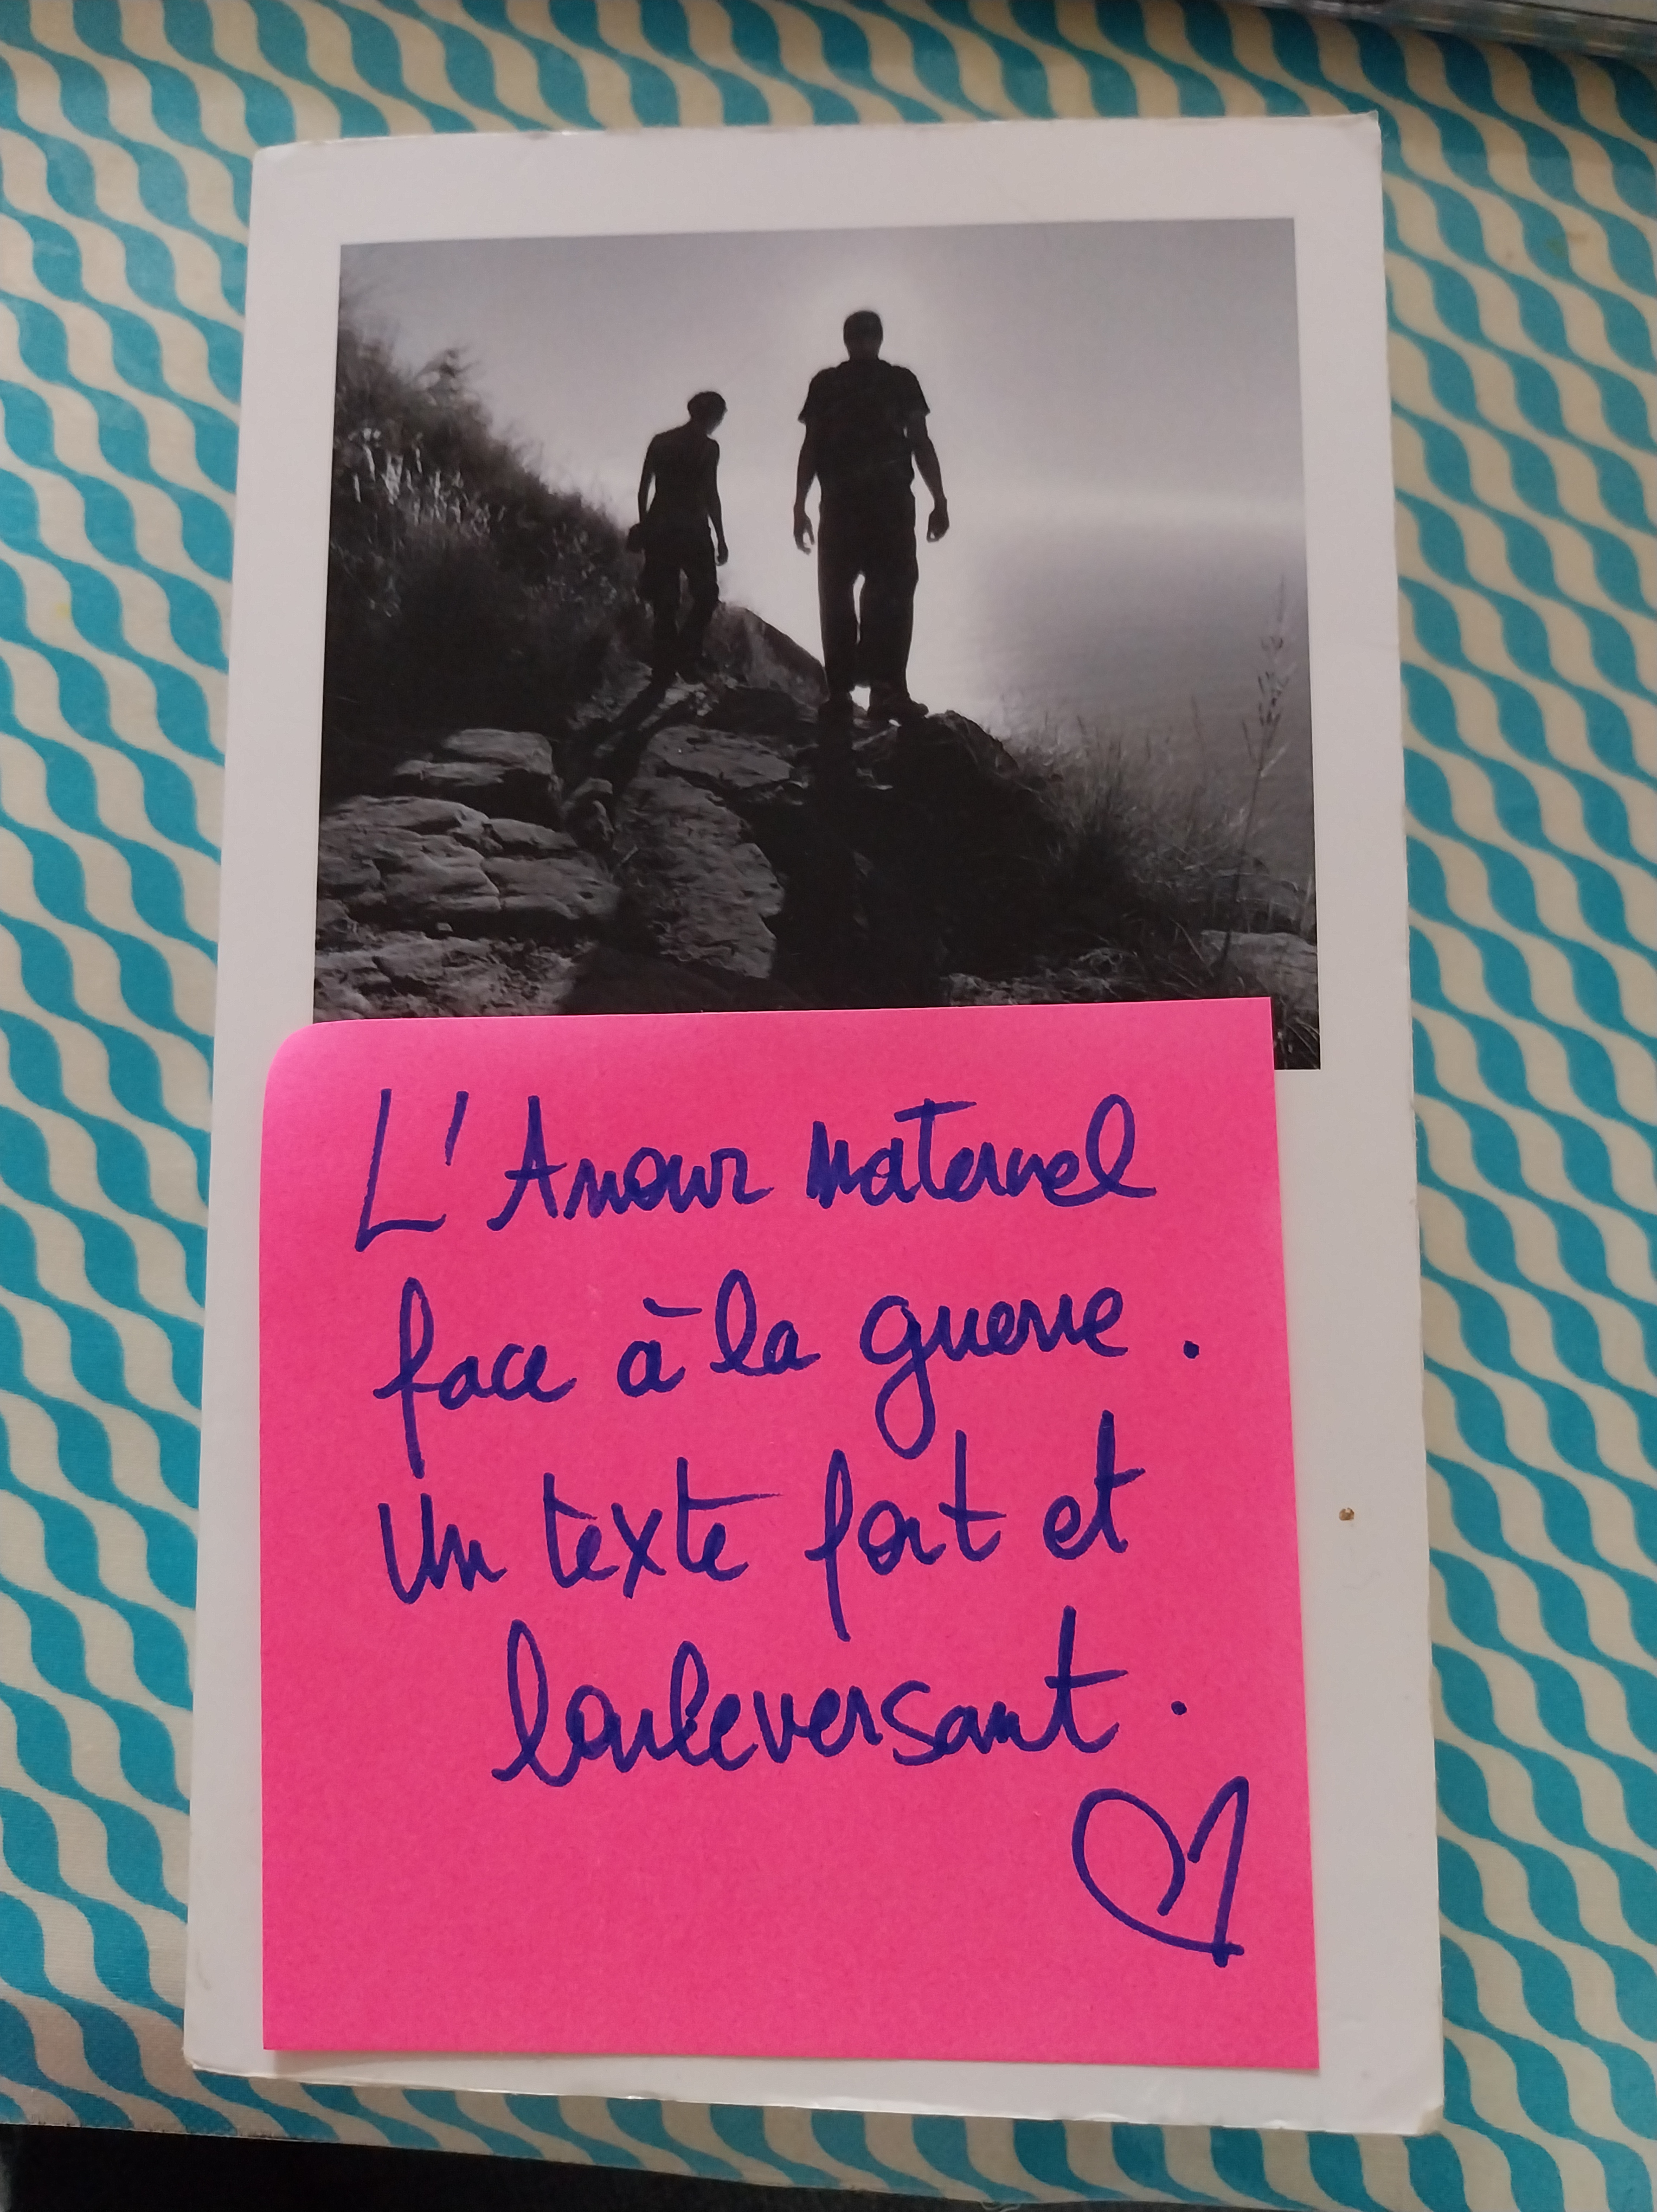 L'Amour maternel
face à la guerre.
Un texte fort et
bouleversant.